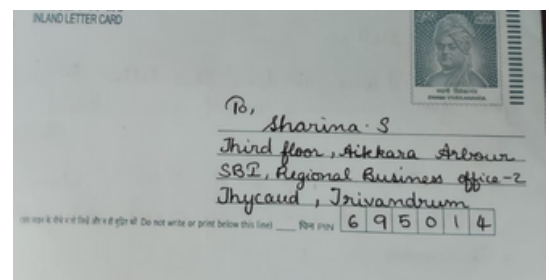 INLAND LETTER CARD
स्वामी विवेकानन्द
SWAMI VIVEKANANDA
To,
Sharina. S
Third floor, Aikkara Arbour
SBI, Regional Business office-2
Thycaud, Trivandrum
Do not write or print below this line) पिन PIN 695014